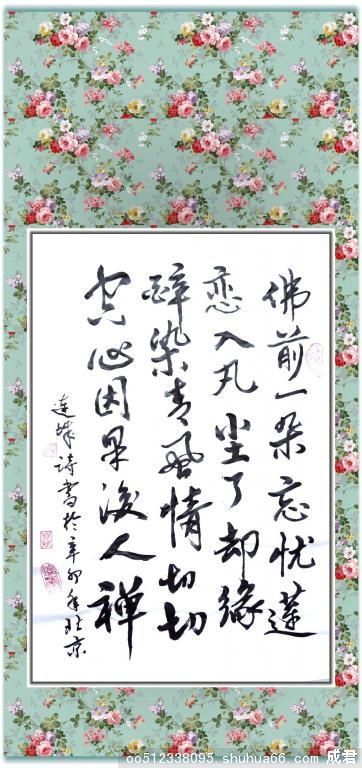 佛前一朵忘忧莲
恋入凡尘了却缘
醉染青风情切切
心因果人禅
连城诗書於辛卯年北京
oo512338095 shuhua66 com 成君